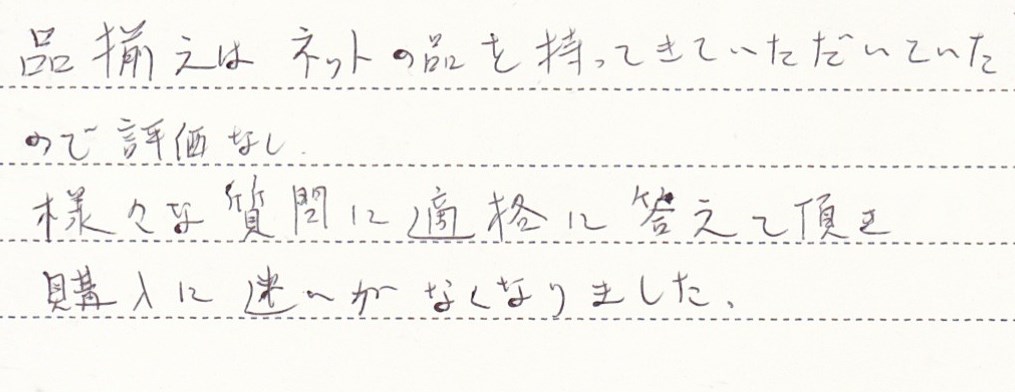 品揃えは ネットの品を持ってきていただいていた
ので評価なし.
様々な質問に適格に答えて頂き
購入に迷いがなくなりました、